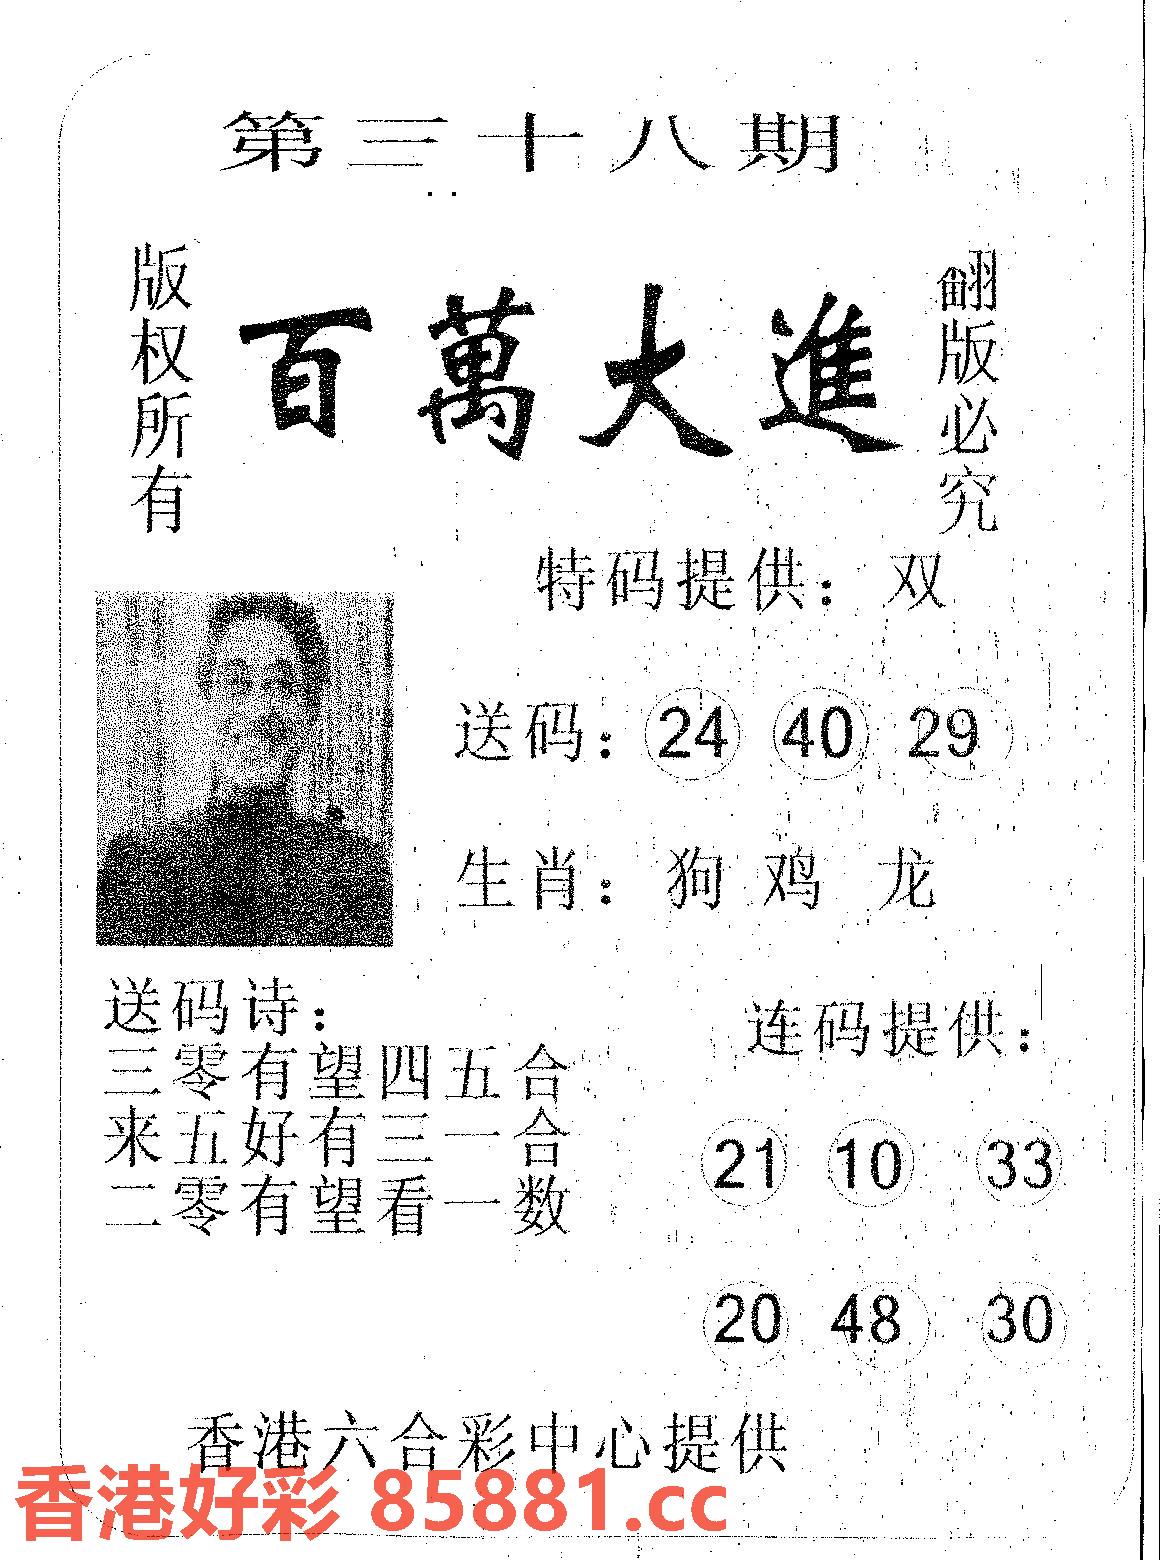 第三十八期
版权所有
百萬大進
翻版必究
特码提供：双
送码：24 40 29
生肖：狗 鸡 龙
送码诗：
三零有望四五合
来五好有三一合
二零有望看一数
连码提供：
21 10 33
20 48 30
香港六合彩中心提供
香港好彩 85881.cc